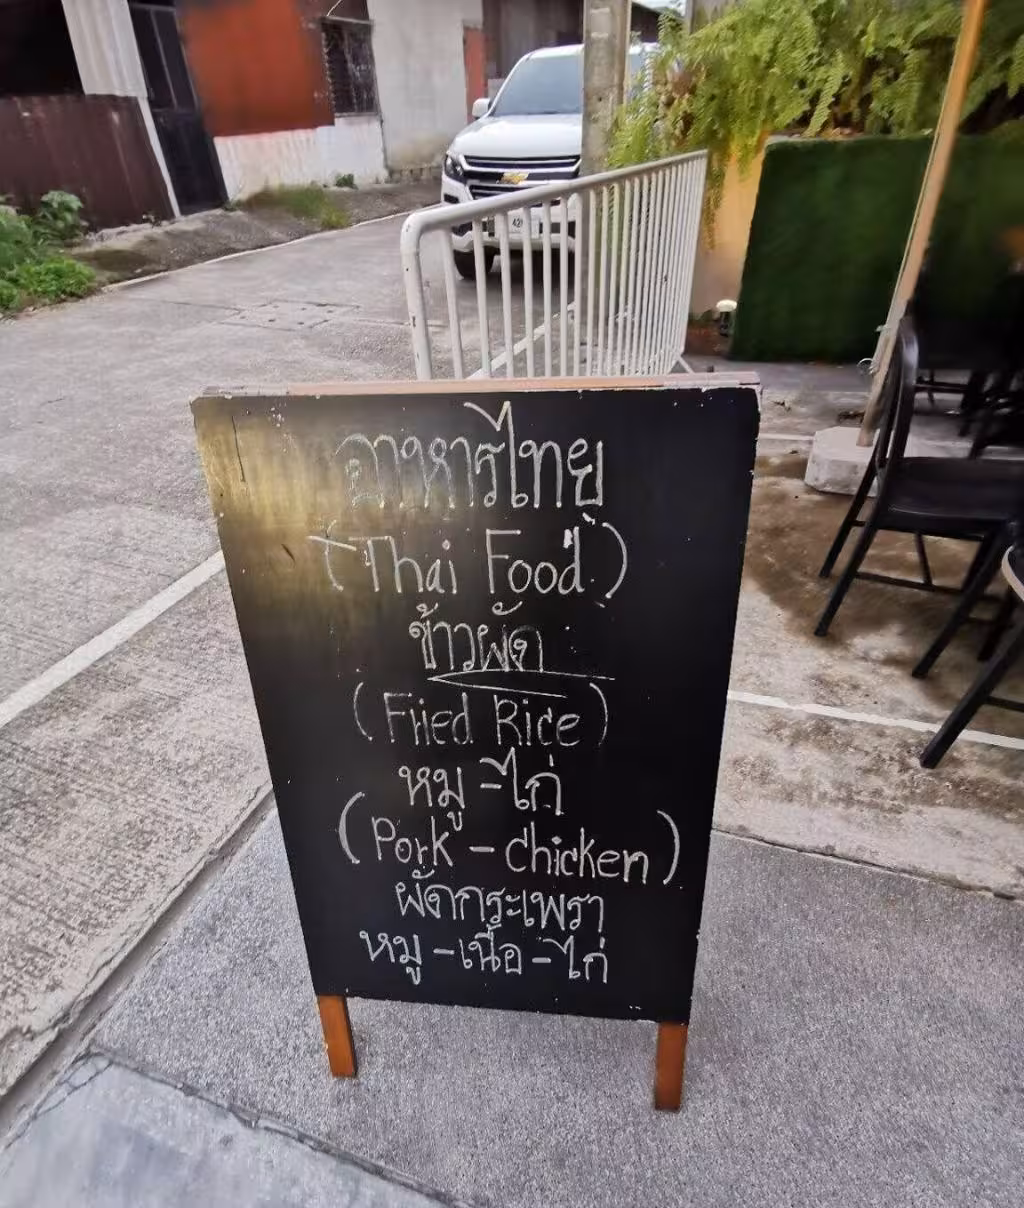 อาหารไทย
(Thai Food)
ข้าวผัด
(Fried Rice)
หมู-ไก่
(Pork - chicken)
ผัดกระเพรา
หมู-เนื้อ-ไก่